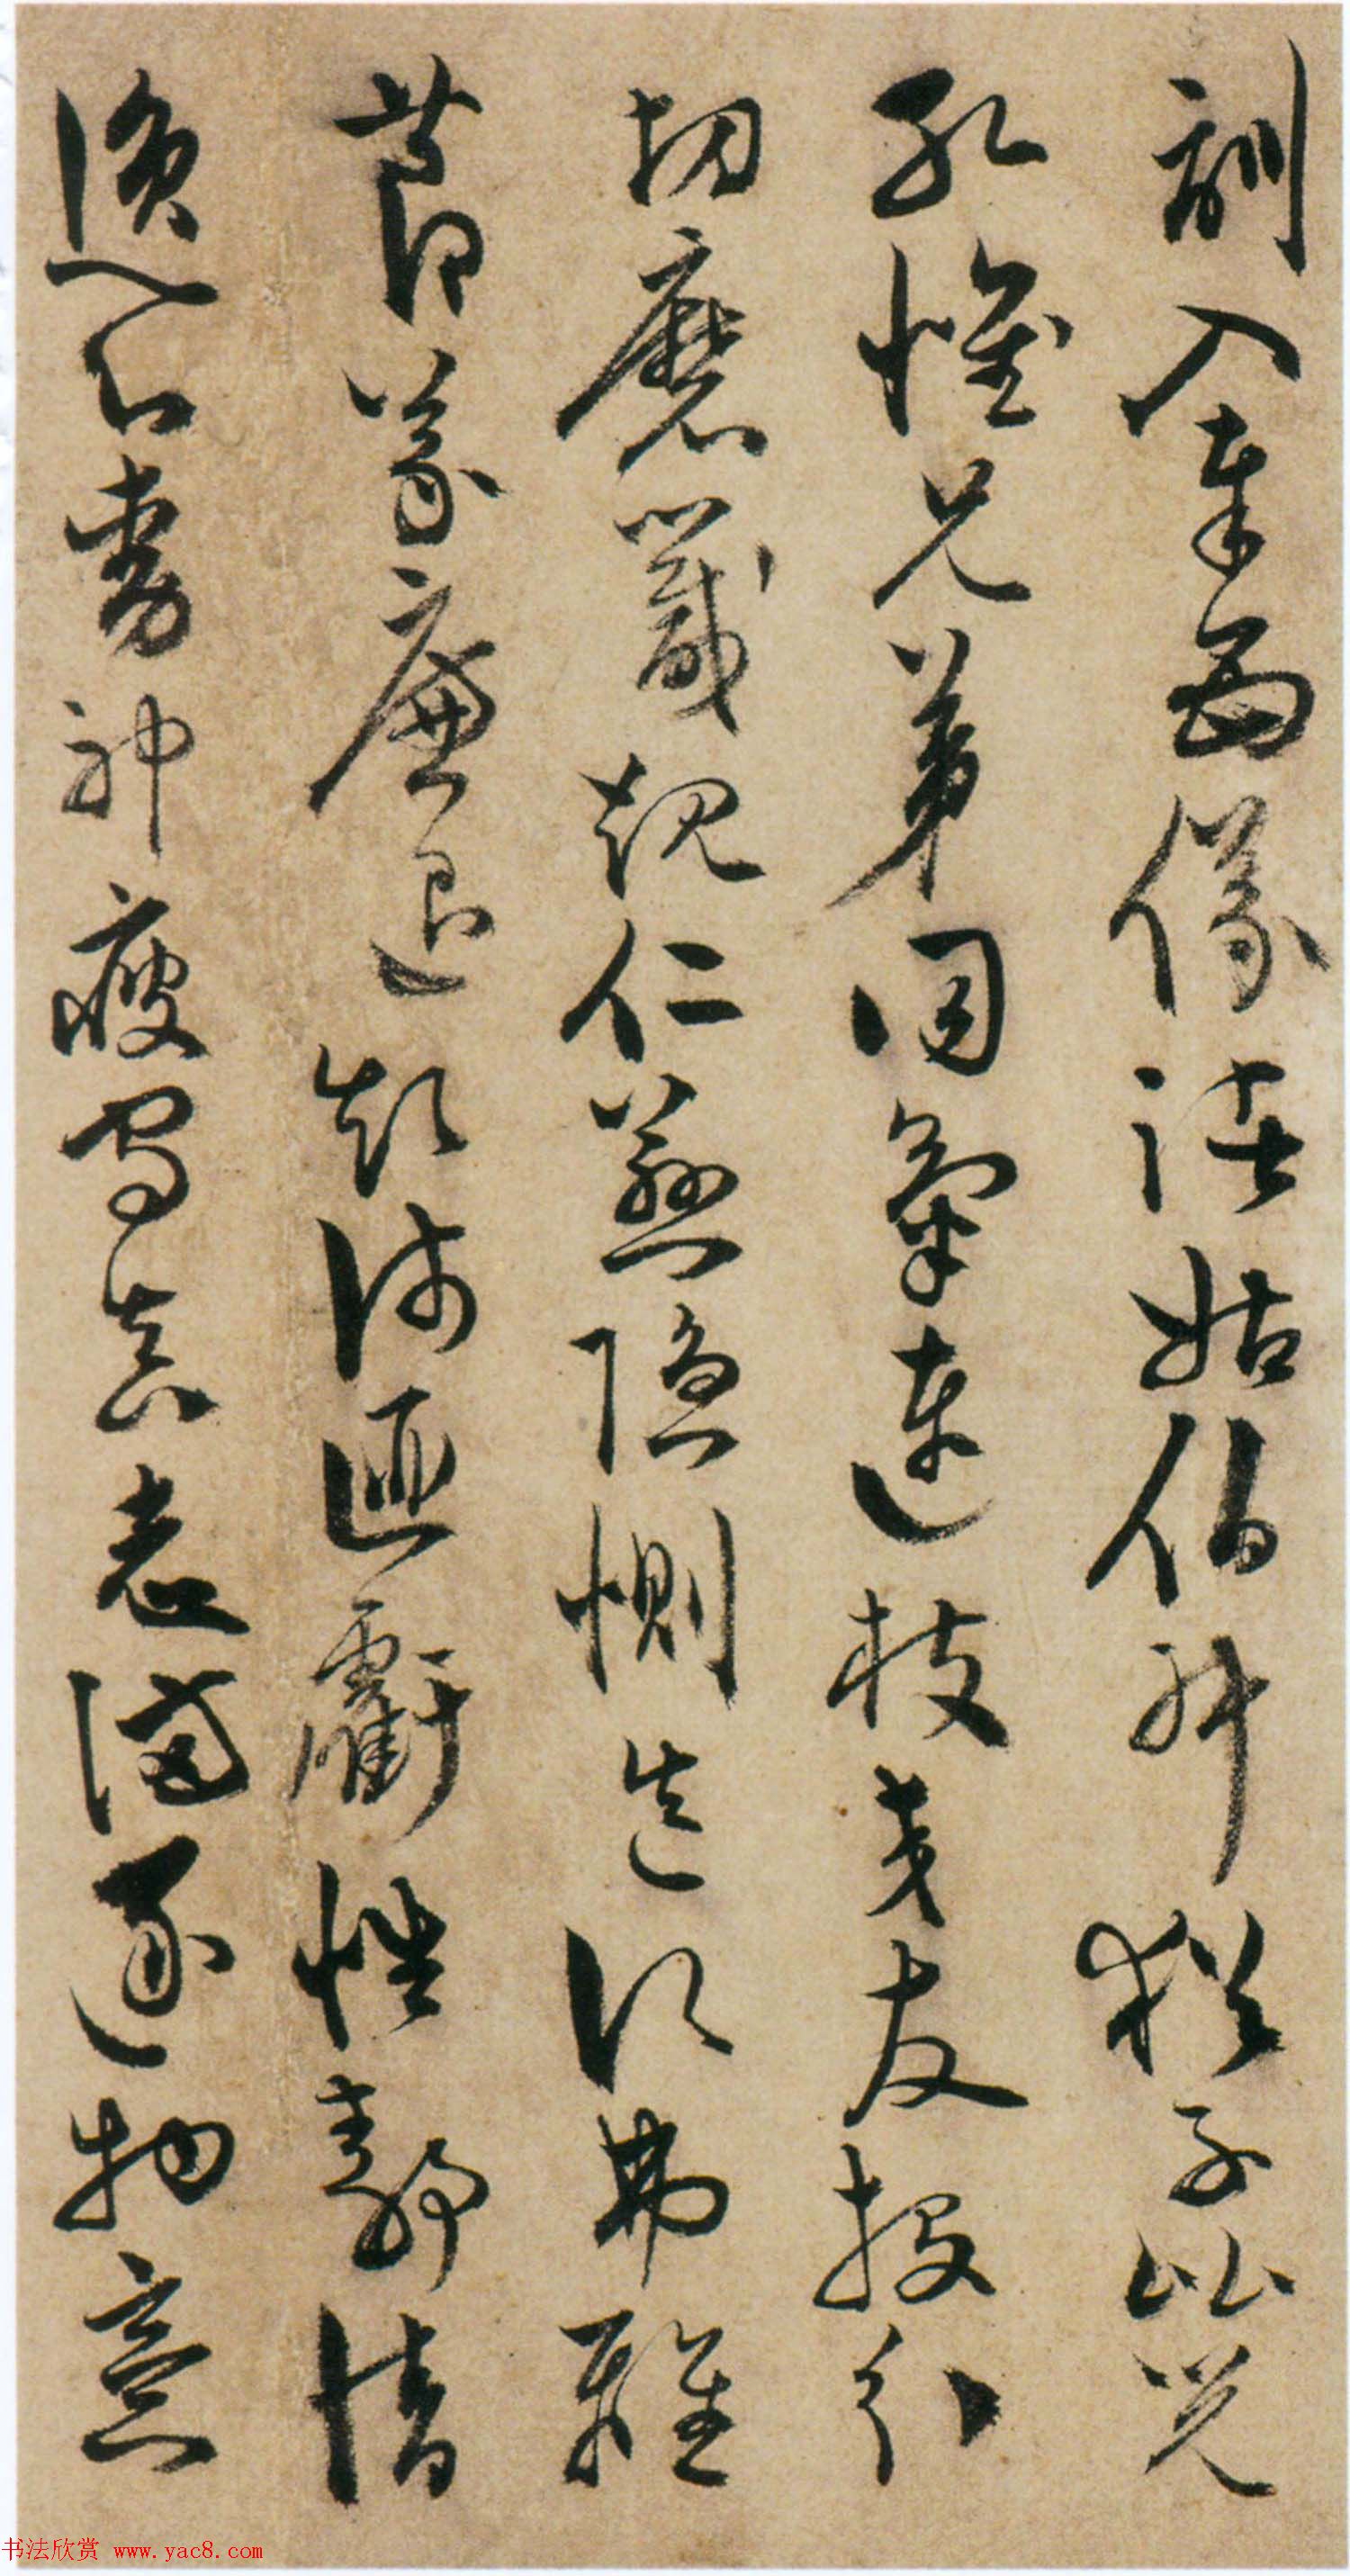 訓入奉母儀諸姑伯叔猶子比兒
孔懷兄弟同氣連枝交友投分
切磨箴規仁慈隱惻造次弗離
節義廉退顛沛匪虧性靜情
逸心動神疲守真志滿逐物意
书法欣赏 www.yac8.com